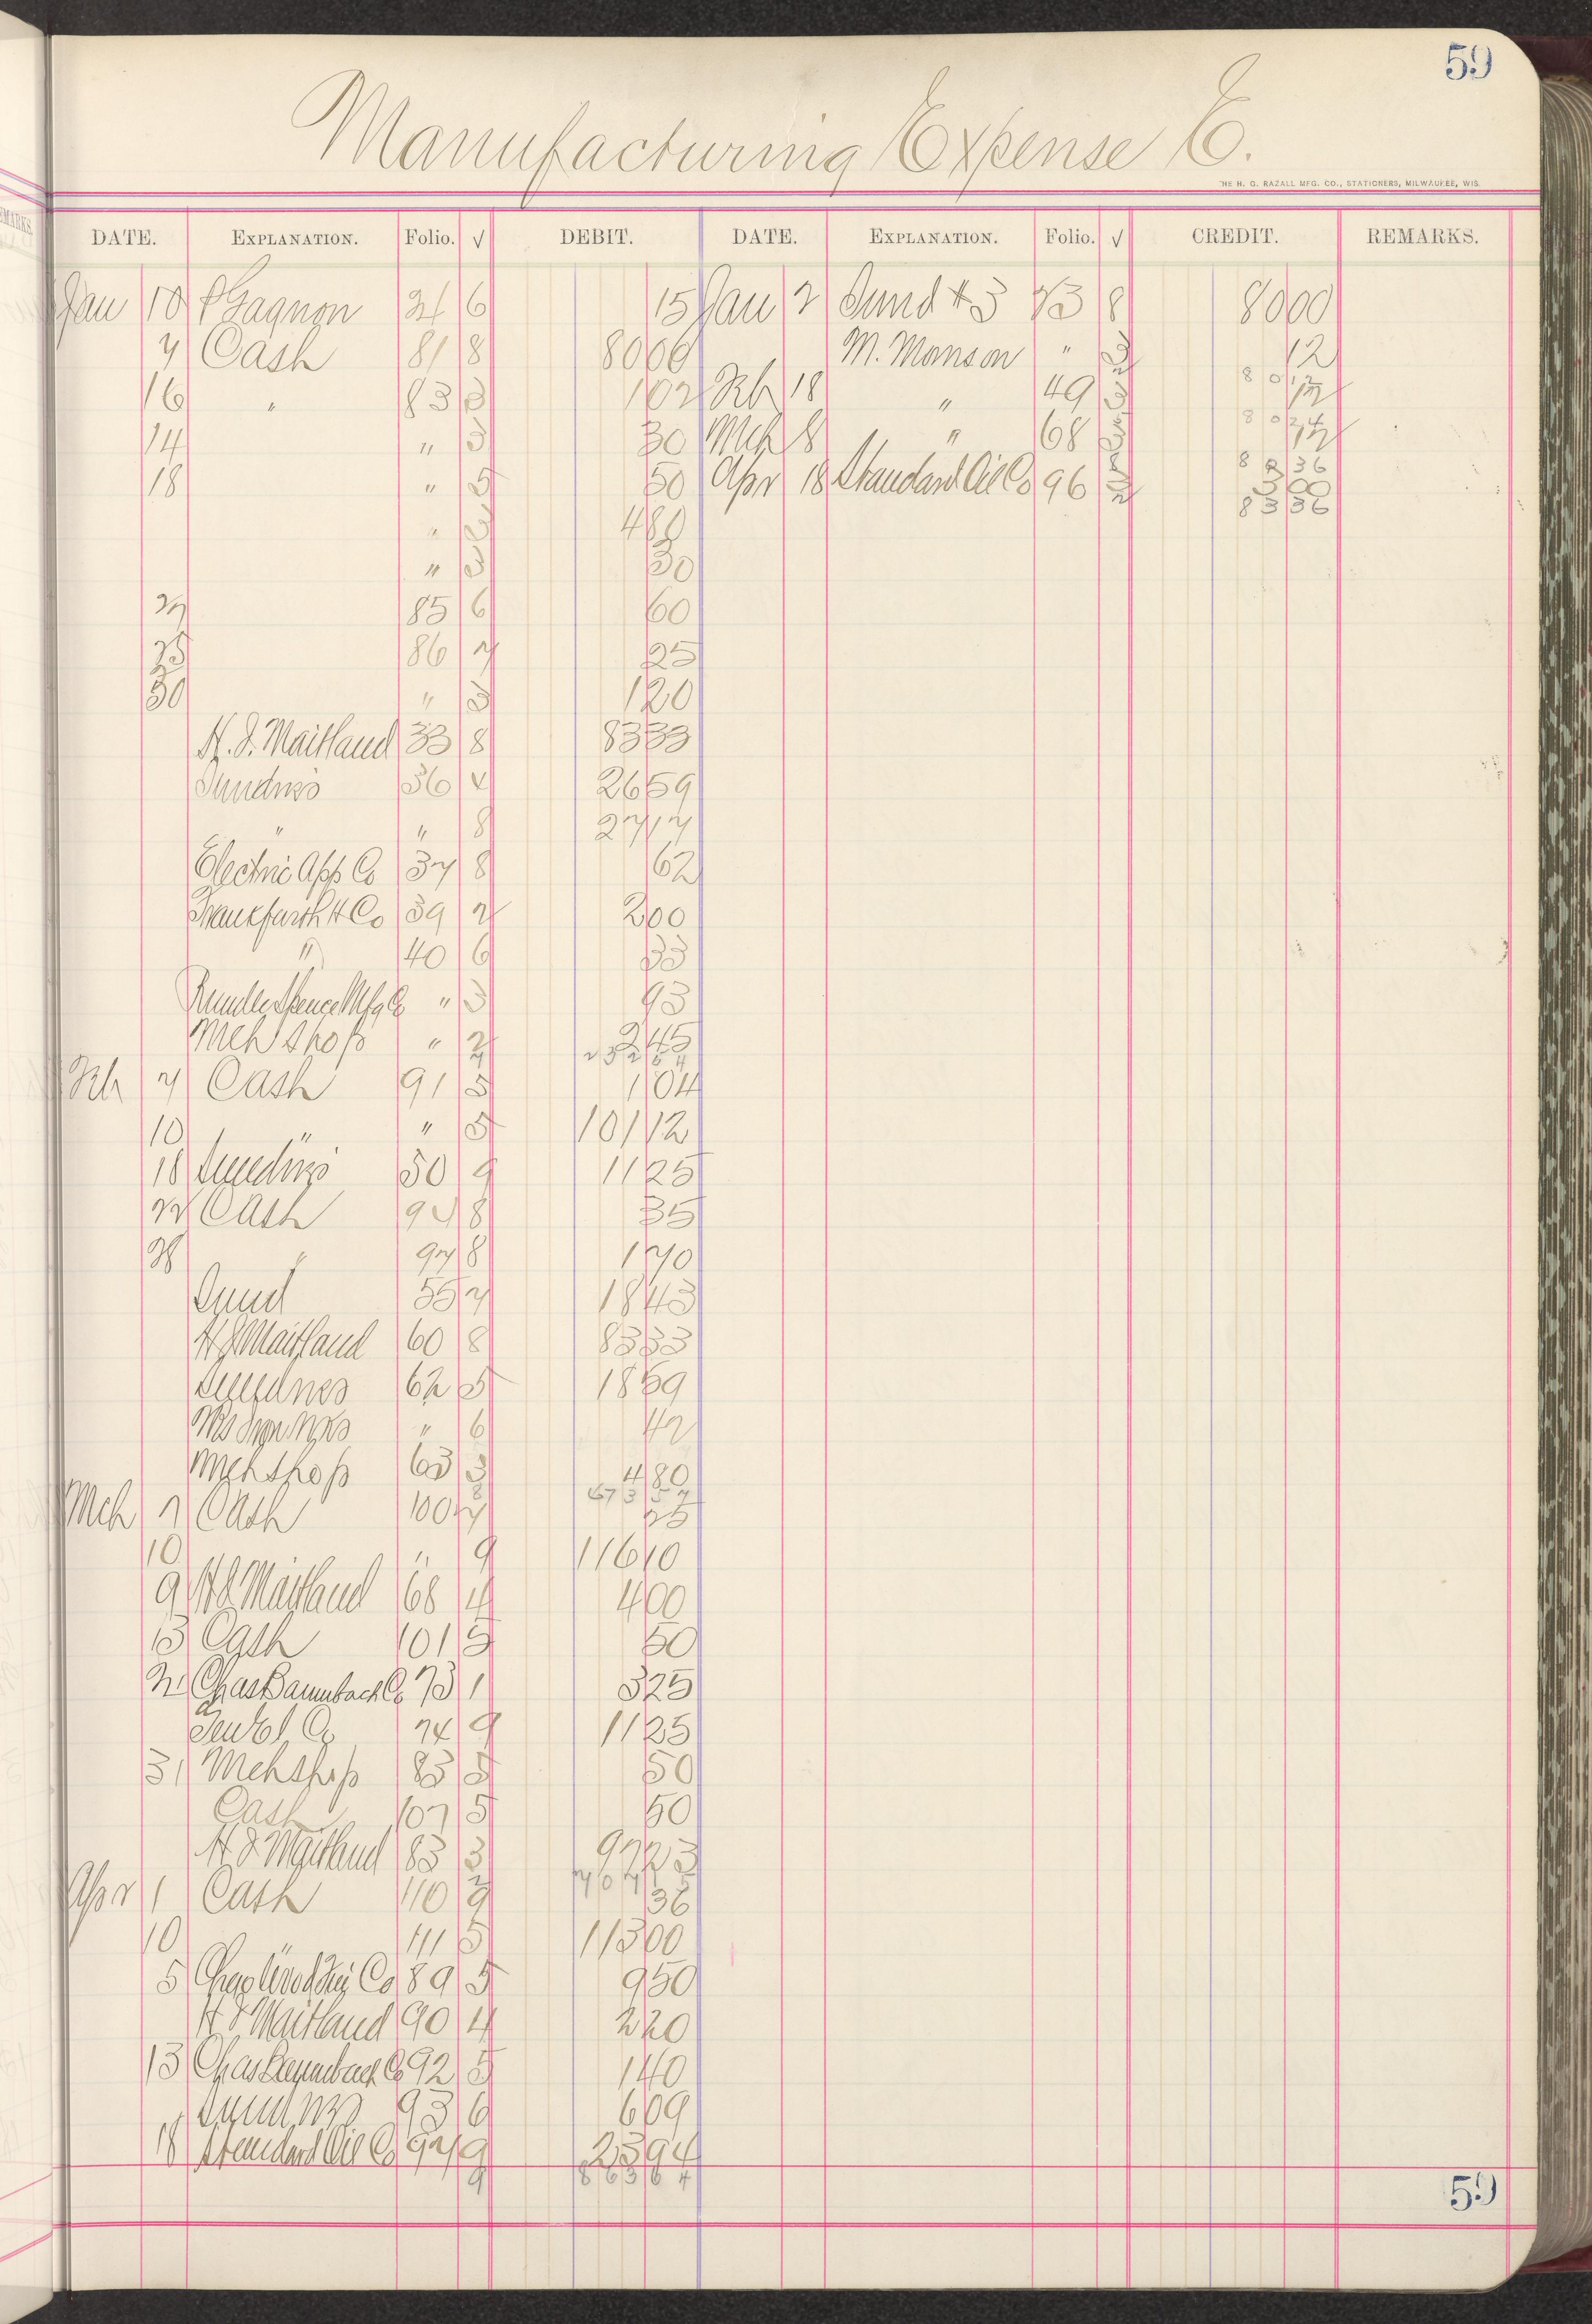 59
Manufacturing Expense E.
THE H. G. RAZALL MFG. CO., STATIONERS, MILWAUKEE, WIS.
DATE. EXPLANATION. Folio. √ DEBIT. DATE. EXPLANATION. Folio. √ CREDIT. REMARKS.
Jan 10 P Gagnon 21 6 15 Jan 2 Sund #3 8 8000
7 Cash 81 8 8000 M. Monson " 3 12
16 " 83 3 102 Feb 18 " 49 3 12
14 " 3 30 Mch 8 " 68 3 12
18 " 5 50 Apr 18 Standard Oil Co 96 300
" 480 8336
" 3 30
85 6 60
25 86 7 25
30 " 3 120
H. J. Maitland 33 8 8333
Sundries 36 2659
" " 8 2717
Electric App Co 37 8 62
Frankfurth H Co 39 200
" 40 6 33
Rundle Spence Mfg Co " 3 93
Mch Shop " 245
Feb 7 Cash 91 5 104
10 " " 5 10112
18 Sundries 50 9 1125
22 Cash 94 8 35
28 " 97 8 170
Sund 55 7 1843
H J Maitland 60 8 8333
Sundries 62 5 1859
" 6 42
Mch Shop 63 3 480
Mch 7 Cash 100 7 25
10 " 9 11610
9 H J Maitland 68 4 400
13 Cash 101 5 50
Chas Baumbach Co 73 1 325
74 9 1125
31 Mch Shop 83 5 50
Cash 107 5 50
H J Maitland 83 3
Apr 1 Cash 110 36
10 " 111 5 11300
5 89 5 950
H J Maitland 90 4 220
13 Chas Baumbach Co 92 5 140
Sundries 93 6 609
18 Standard Oil Co 94 9 2394
86364
59